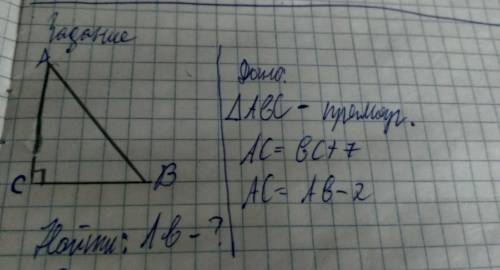 Задание
A
C
B
Найти: AB - ?
Дано:
△ABC - прямоуг.
AC = BC + 7
AC = AB - 2